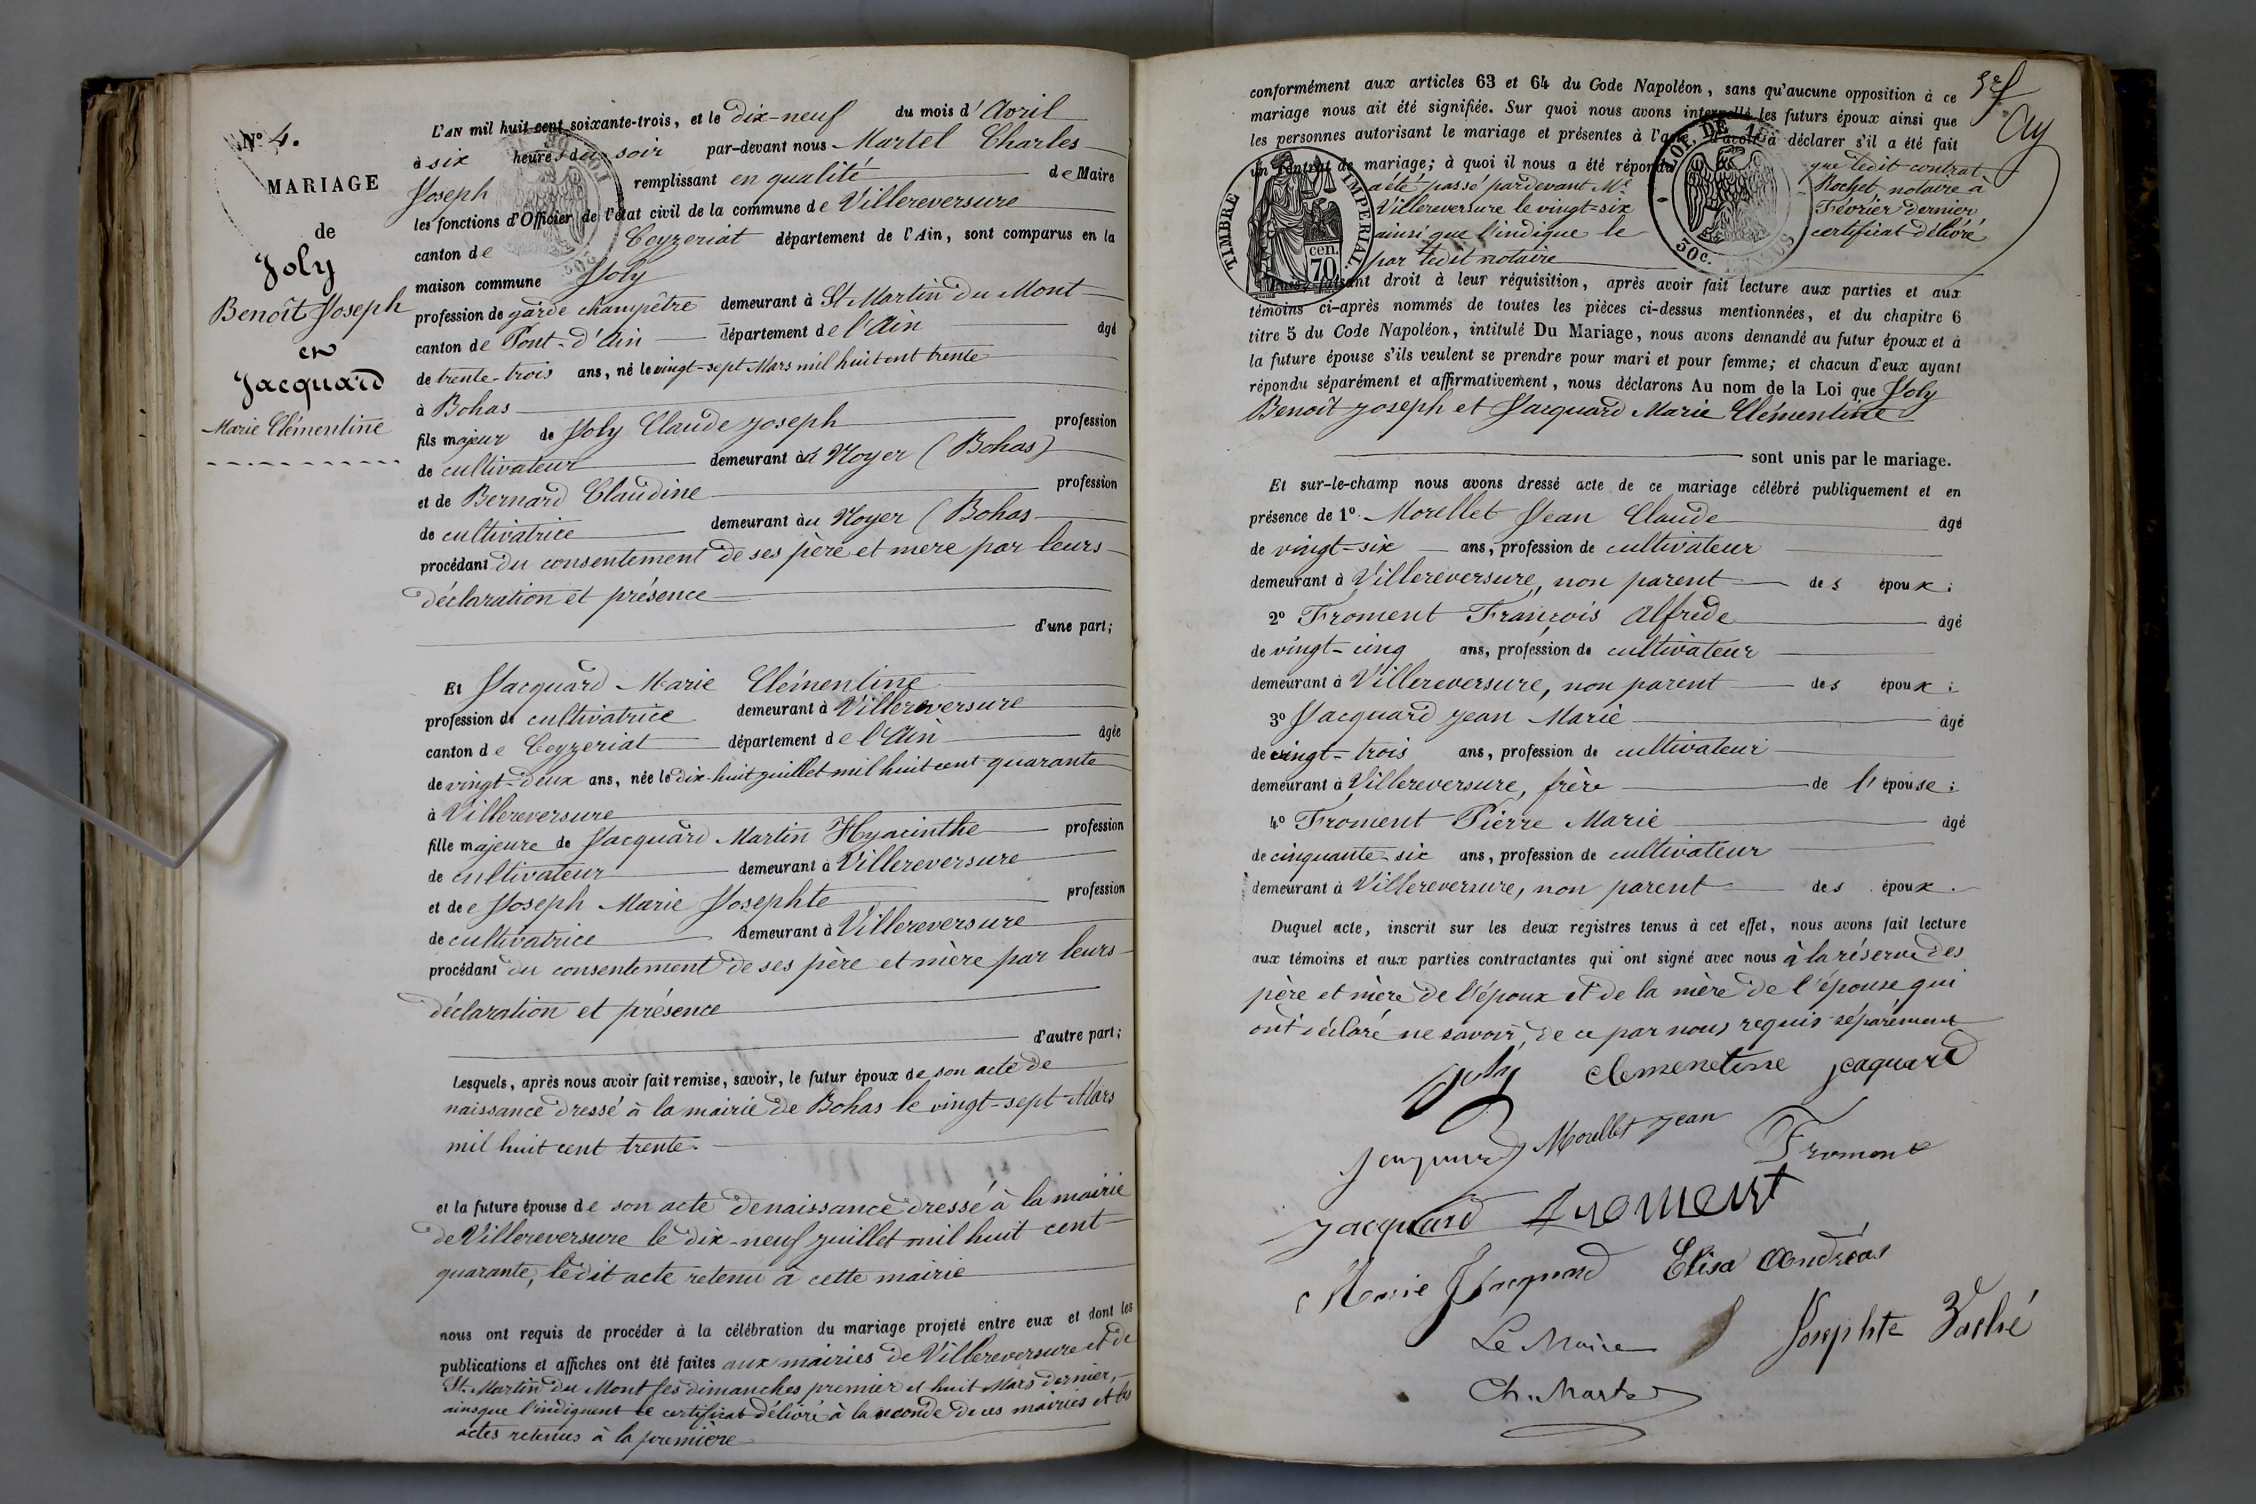 N° 4.
MARIAGE
de
Joly
Benoît Joseph
et
Jacquard
Marie Clémentine
L'AN mil huit cent soixante-trois, et le dix-neuf du mois d'Avril
à six heures du soir par-devant nous Martel Charles
Joseph remplissant en qualité de Maire
les fonctions d'Officier de l'état civil de la commune de Villereversure
canton de Ceyzeriat département de l'Ain, sont comparus en la
maison commune Joly
profession de garde champêtre demeurant à St Martin du Mont
canton de Pont-d'Ain département de l'Ain âgé
de trente-trois ans, né le vingt-sept Mars mil huit cent trente
à Bohas
fils majeur de Joly Claude Joseph profession
de cultivateur demeurant à Noyer (Bohas)
et de Bernard Claudine profession
de cultivatrice demeurant au Noyer (Bohas
procédant du consentement de ses père et mère par leurs
déclaration et présence
d'une part;
Et Jacquard Marie Clémentine
profession de cultivatrice demeurant à Villereversure
canton de Ceyzeriat département de l'Ain âgée
de vingt-deux ans, née le dix-huit juillet mil huit cent quarante
à Villereversure
fille majeure de Jacquard Martin Hyacinthe profession
de cultivateur demeurant à Villereversure
et de e Joseph Marie Josephte profession
de cultivatrice demeurant à Villereversure
procédant du consentement de ses père et mère par leurs
déclaration et présence
d'autre part;
Lesquels, après nous avoir fait remise, savoir, le futur époux de son acte de
naissance dressé à la mairie de Bohas le vingt-sept Mars
mil huit cent trente.
et la future épouse de son acte de naissance dressé à la mairie
de Villereversure le dix-neuf juillet mil huit cent
quarante, ledit acte retenu à cette mairie
nous ont requis de procéder à la célébration du mariage projeté entre eux et dont les
publications et affiches ont été faites aux mairies de Villereversure et de
St. Martin du Mont les dimanches premier et huit Mars dernier,
ainsi que l'indiquent le certificat délivré à la seconde de ces mairies et les
actes retenus à la première
conformément aux articles 63 et 64 du Code Napoléon, sans qu'aucune opposition à ce
mariage nous ait été signifiée. Sur quoi nous avons interpellé les futurs époux ainsi que
les personnes autorisant le mariage et présentes à l'acte, d'avoir à déclarer s'il a été fait
un contrat de mariage; à quoi il nous a été répondu que ledit contrat
a été passé pardevant Me Rochet, notaire à
Villereversure le vingt-six Février dernier,
ainsi que l'indique le certificat délivré
par ledit notaire
TIMBRE IMPERIAL
cen.
70
50c.
Nous, faisant droit à leur réquisition, après avoir fait lecture aux parties et aux
témoins ci-après nommés de toutes les pièces ci-dessus mentionnées, et du chapitre 6
titre 5 du Code Napoléon, intitulé Du Mariage, nous avons demandé au futur époux et à
la future épouse s'ils veulent se prendre pour mari et pour femme; et chacun d'eux ayant
répondu séparément et affirmativement, nous déclarons Au nom de la Loi que Joly
Benoît Joseph et Jacquard Marie Clémentine
sont unis par le mariage.
Et sur-le-champ nous avons dressé acte de ce mariage célébré publiquement et en
présence de 1° Morellet Jean Claude âgé
de vingt-six ans, profession de cultivateur
demeurant à Villereversure, non parent des époux;
2° Froment François Alfrede âgé
de vingt-cinq ans, profession de cultivateur
demeurant à Villereversure, non parent des époux;
3° Jacquard Jean Marie âgé
de vingt-trois ans, profession de cultivateur
demeurant à Villereversure, frère de l'épouse;
4° Froment Pierre Marie âgé
de cinquante-six ans, profession de cultivateur
demeurant à Villereversure, non parent des époux.
Duquel acte, inscrit sur les deux registres tenus à cet effet, nous avons fait lecture
aux témoins et aux parties contractantes qui ont signé avec nous à la réserve des
père et mère de l'époux et de la mère de l'épouse qui
ont déclaré ne savoir, de ce par nous requis séparément
Joly Clemenetine Jcaquard
Jacquard Morellet Jean Froment
Jacquard Froment
Marie Jacquard Elisa Andréas
Le Maire Josephte
Ch. Martel